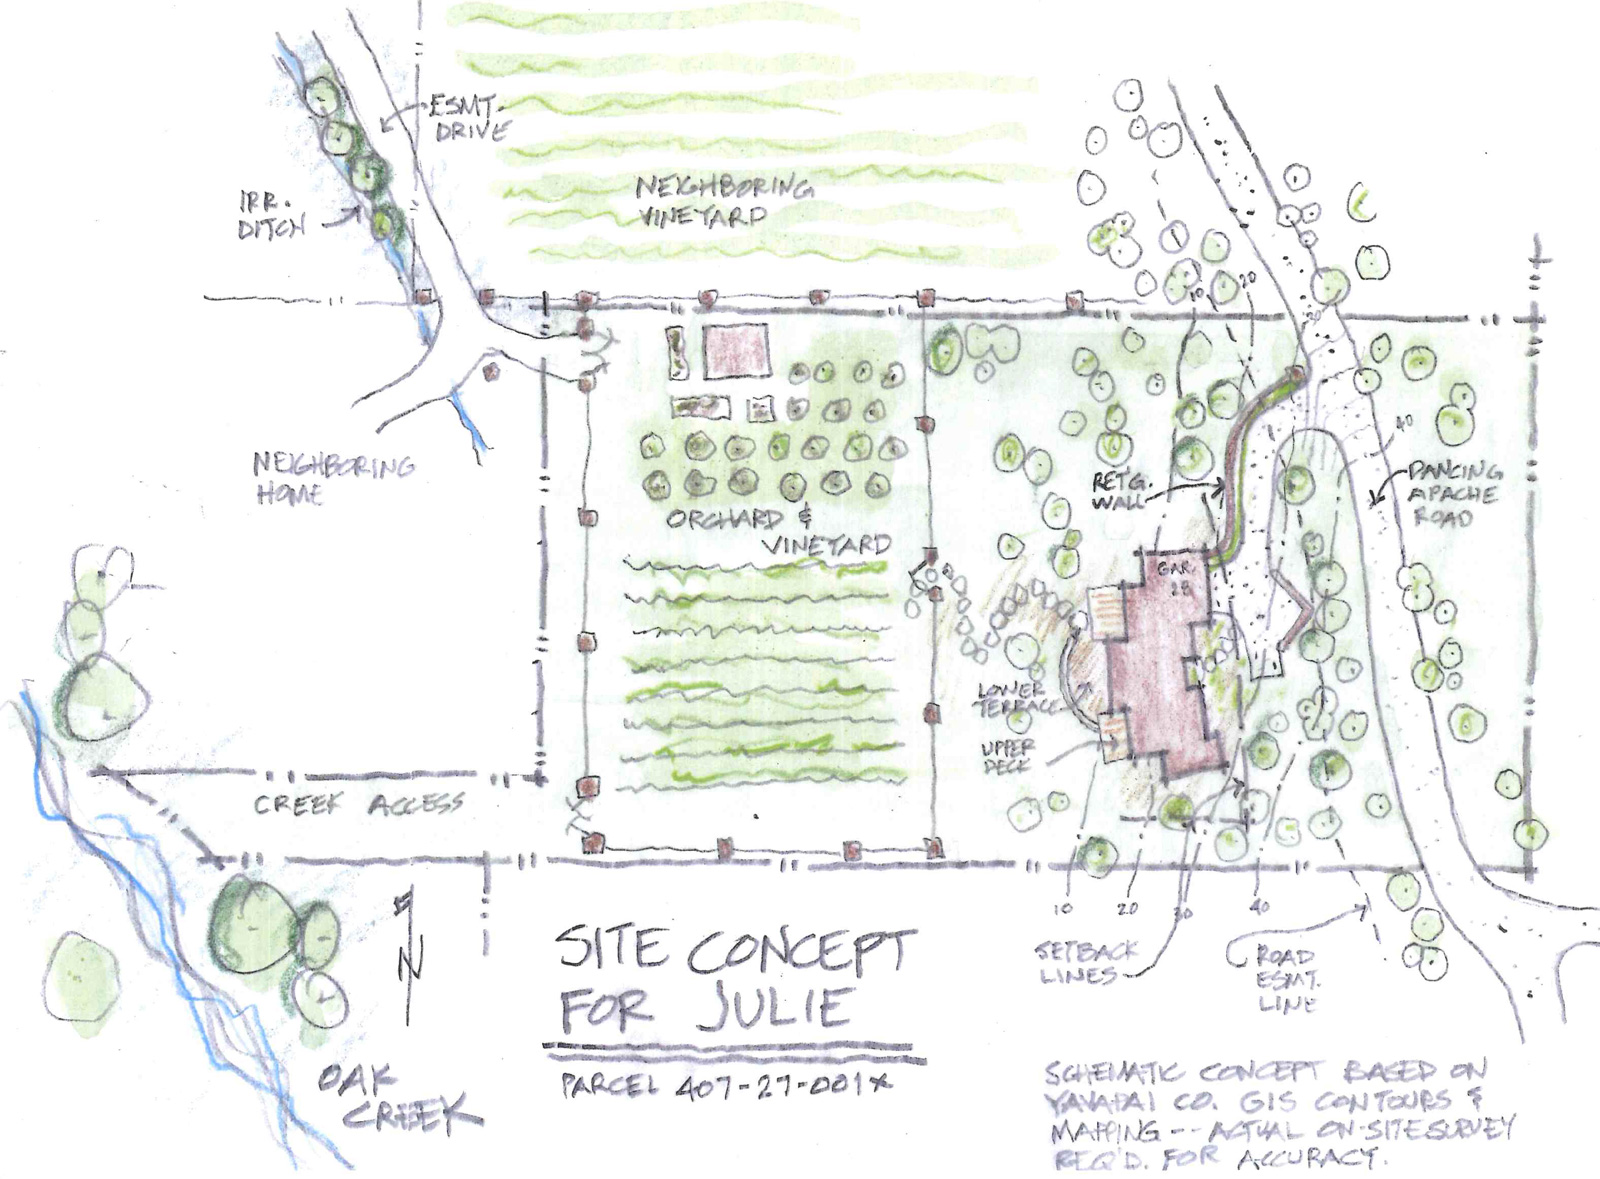 ESMT.
DRIVE
IRR.
DITCH
NEIGHBORING
VINEYARD
10
20
NEIGHBORING
HOME
ORCHARD &
VINEYARD
RET'G.
WALL
40
DANCING
APACHE
ROAD
GAR.
28
LOWER
TERRACE
UPPER
DECK
CREEK ACCESS
10 20 30 40
SETBACK
LINES
ROAD
ESMT.
LINE
N
SITE CONCEPT
FOR JULIE
PARCEL 407-27-001X
OAK
CREEK
SCHEMATIC CONCEPT BASED ON
YAVAPAI CO. GIS CONTOURS &
MAPPING -- ACTUAL ON-SITE SURVEY
REQ'D. FOR ACCURACY.